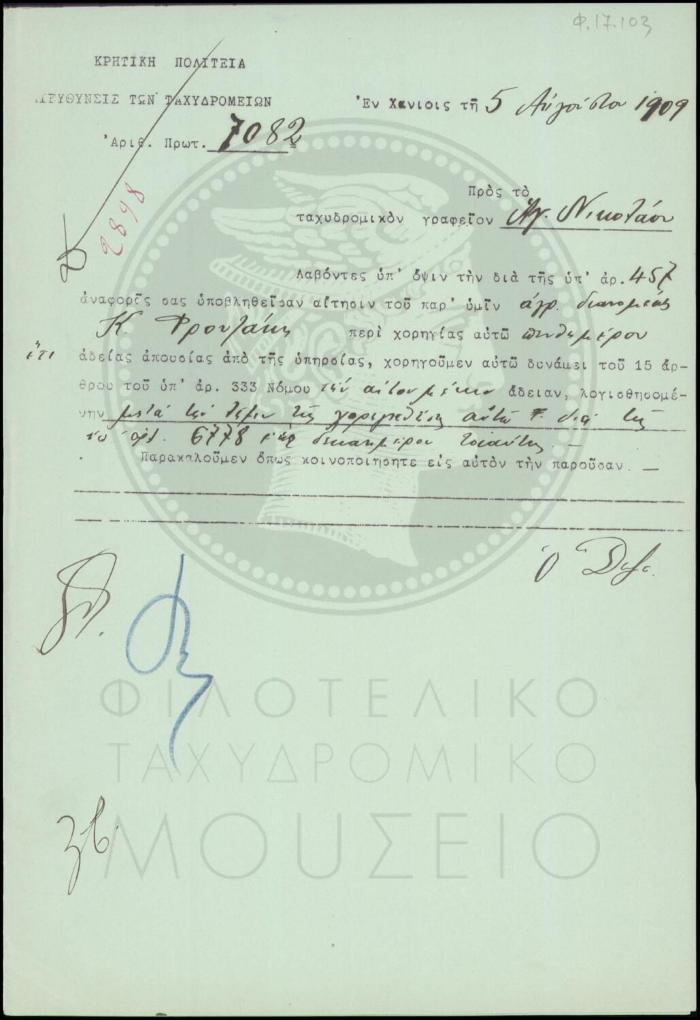 Φ.17.103
ΚΡΗΤΙΚΗ ΠΟΛΙΤΕΙΑ
ΔΙΕΥΘΥΝΣΙΣ ΤΩΝ ΤΑΧΥΔΡΟΜΕΙΩΝ
Ἐν Χανίοις τῇ 5 Αὐγούστου 1909
Ἀριθ. Πρωτ. 7082
2898
Πρὸς τὸ
ταχυδρομικὸν γραφεῖον Ἁγ. Νικολάου
Λαβόντες ὑπ' ὄψιν τὴν διὰ τῆς ὑπ' ἀρ. 457
ἀναφορᾶς σας ὑποβληθεῖσαν αἴτησιν τοῦ παρ' ὑμῖν ἀγρ. διανομέως
Κ. Φρουζάκη περὶ χορηγίας αὐτῷ πενθημέρου
ἔτι ἀδείας ἀπουσίας ἀπὸ τῆς ὑπηρσίας, χορηγοῦμεν αὐτῷ δυνάμει τοῦ 15 ἄρ-
θρου τοῦ ὑπ' ἀρ. 333 Νόμου τὴν αἰτουμένην ἄδειαν, λογισθησομέ-
νην μετὰ τὴν τῆς αὐτῷ διὰ τῆς
ὑπ' ἀρ. 6778 δεκαημέρου τοιαύτης.
Παρακαλοῦμεν ὅπως κοινοποιήσητε εἰς αὐτὸν τὴν παροῦσαν. —
ΦΙΛΟΤΕΛΙΚΟ
ΤΑΧΥΔΡΟΜΙΚΟ
ΜΟΥΣΕΙΟ